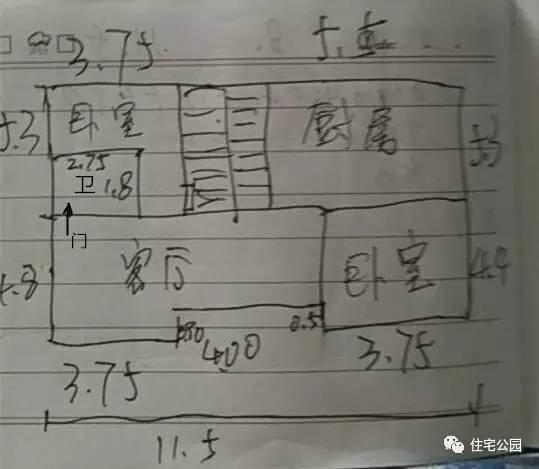 3.75
卧室
厨房
5.3
2.75
卫
1.8
门
客厅
卧室
4.8
4.4
400
0.5
3.75
3.75
11.5
住宅公园